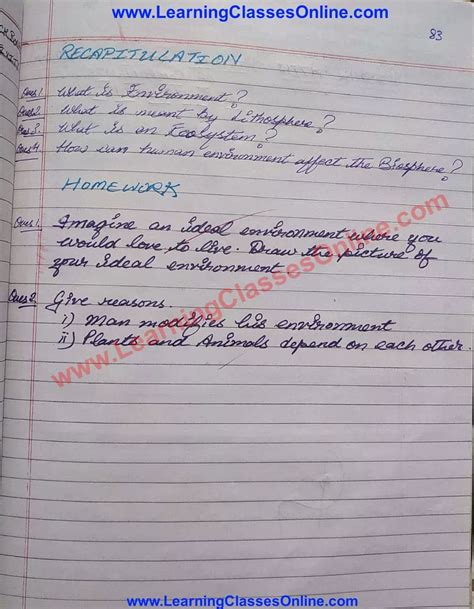 www.LearningClassesOnline.com
83
RECAPITULATION
Ques 1. What is Environment?
Ques 2. What is meant by Lithosphere?
Ques 3. What is an Ecosystem?
Ques 4. How can human environment affect the Biosphere?
HOMEWORK
Ques 1. Imagine an ideal environment where you
would love to live. Draw the picture of
your ideal environment
Ques 2. Give reasons.
i) Man modifies his environment
ii) Plants and Animals depend on each other.
www.LearningClassesOnline.com
www.LearningClassesOnline.com